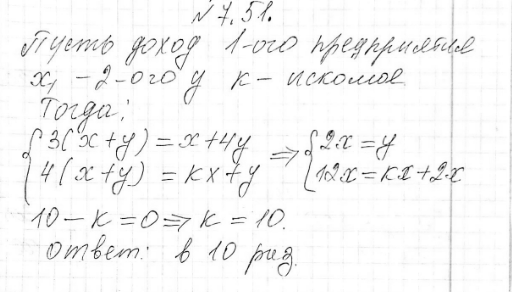 №7.51.
Пусть доход 1-ого предприятия
x, - 2-ого y k - искомое
Тогда:
{ 3(x+y) = x+4y => { 2x = y
{ 4(x+y) = kx+y { 12x = kx+2x
10 - k = 0 => k = 10.
Ответ: в 10 раз.